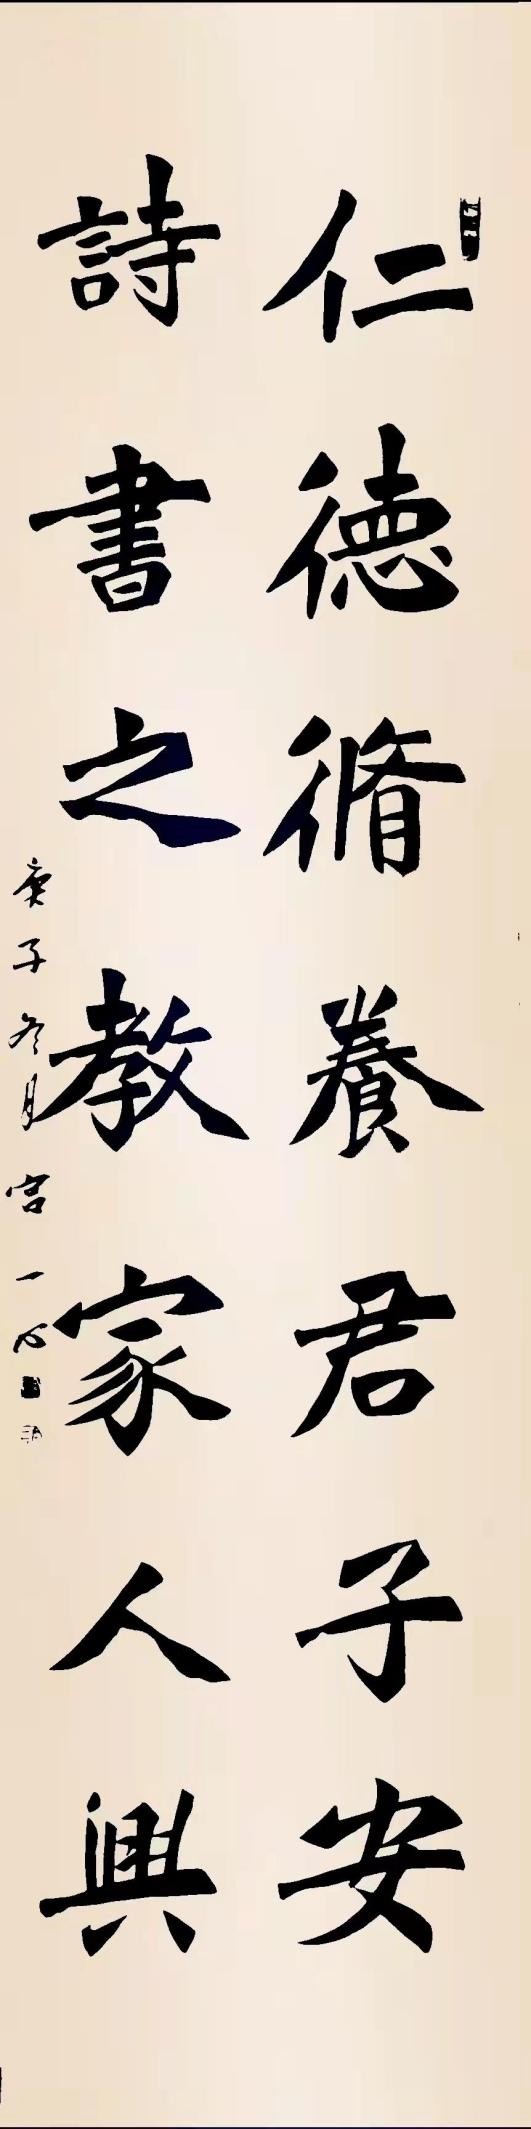 仁德脩養君子安
詩書之教家人興
庚子冬月宫一心